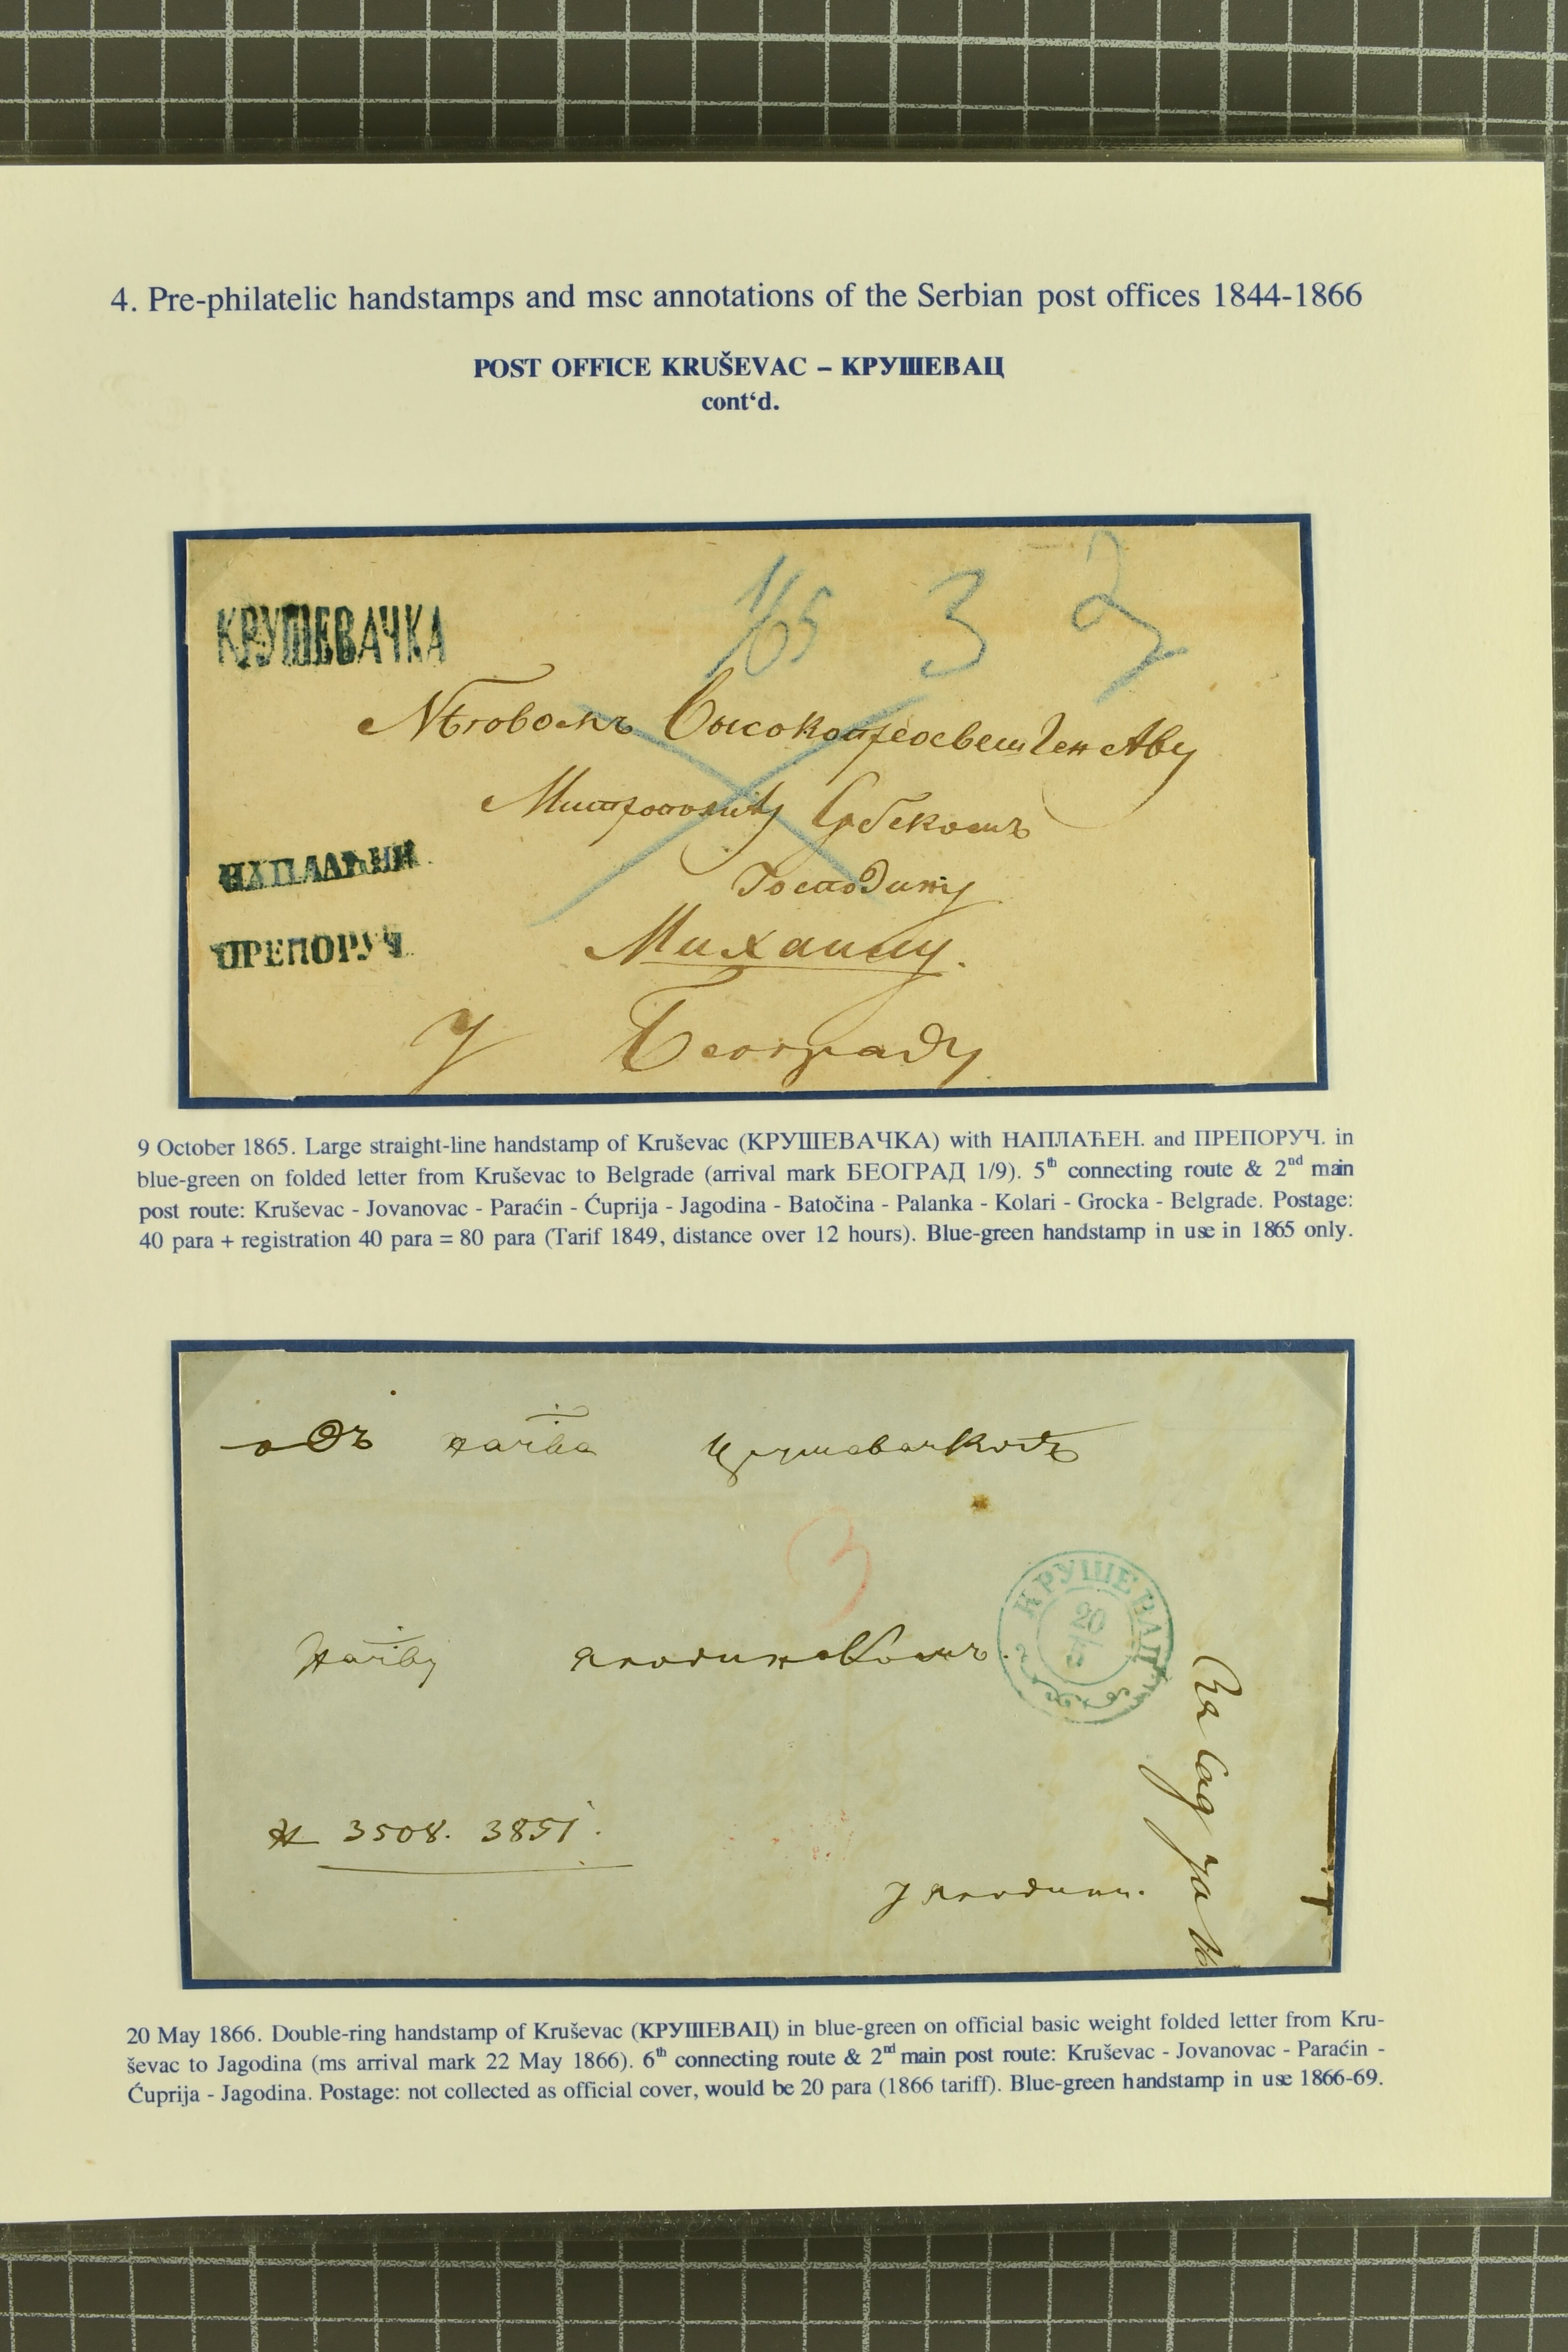 4. Pre-philatelic handstamps and msc annotations of the Serbian post offices 1844-1866
POST OFFICE KRUŠEVAC – КРУШЕВАЦ
cont‘d.
1/65 3 2
КРУШЕВАЧКА
Нѣговомъ Высокопреосвештенству
Митрополиту Србскомъ
НАПЛАЋЕН.
Господину
ПРЕПОРУЧ.
Михаилу.
У Београду
9 October 1865. Large straight-line handstamp of Kruševac (КРУШЕВАЧКА) with НАПЛАЋЕН. and ПРЕПОРУЧ. in
blue-green on folded letter from Kruševac to Belgrade (arrival mark БЕОГРАД 1/9). 5th connecting route & 2nd main
post route: Kruševac - Jovanovac - Paraćin - Ćuprija - Jagodina - Batočina - Palanka - Kolari - Grocka - Belgrade. Postage:
40 para + registration 40 para = 80 para (Tarif 1849, distance over 12 hours). Blue-green handstamp in use in 1865 only.
одъ
3
КРУШЕВАЦ
20
5
ягодинскомъ.
3508. 3851.
у Ягодини.
20 May 1866. Double-ring handstamp of Kruševac (КРУШЕВАЦ) in blue-green on official basic weight folded letter from Kru-
ševac to Jagodina (ms arrival mark 22 May 1866). 6th connecting route & 2nd main post route: Kruševac - Jovanovac - Paraćin -
Ćuprija - Jagodina. Postage: not collected as official cover, would be 20 para (1866 tariff). Blue-green handstamp in use 1866-69.